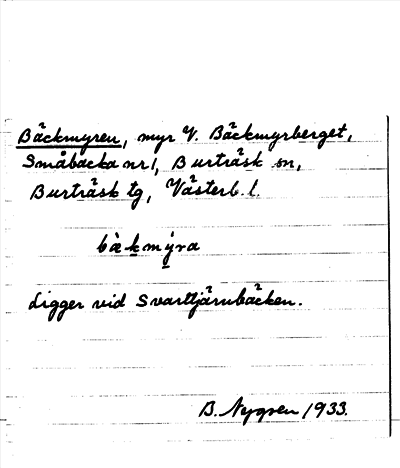 Bäckmyren, myr V. Bäckmyrberget,
Småbäcka nr 1, Burträsk sn,
Burträsk tg, Västerb. l.
bäkmýra
Ligger vid Svarttjärnbäcken.
B. Nygren 1933.